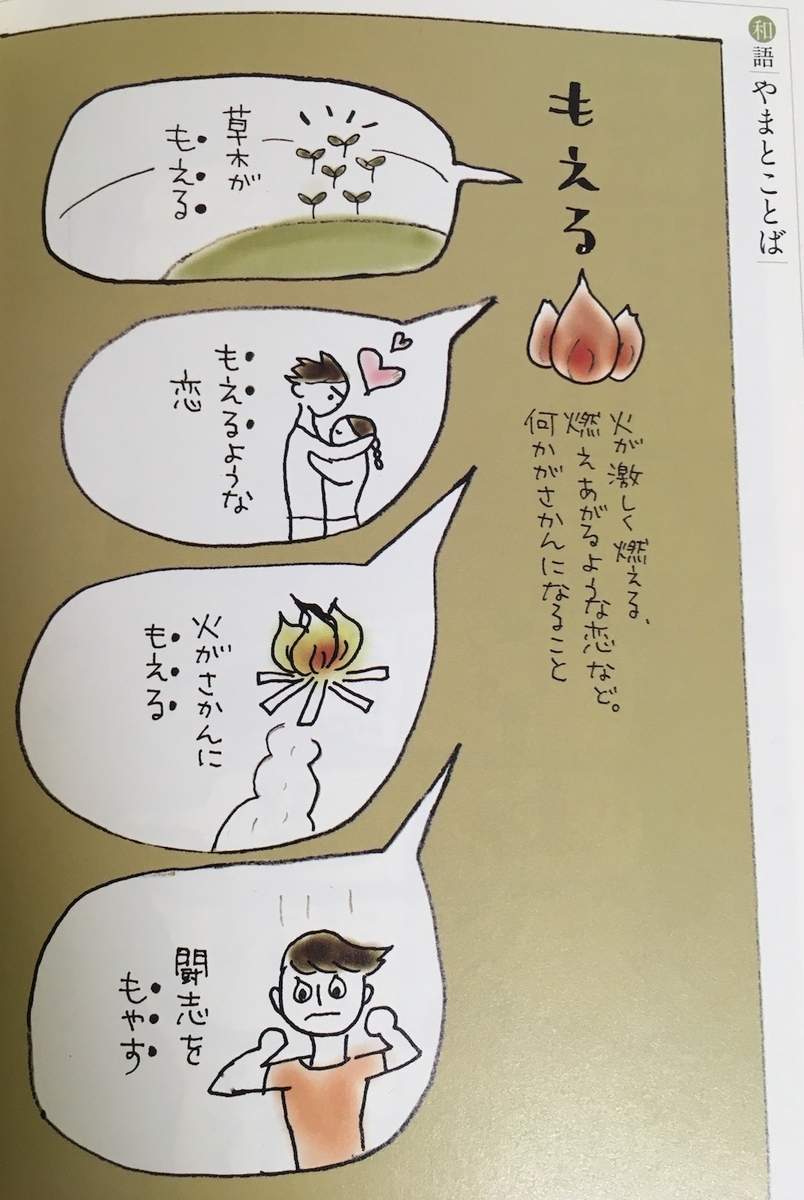 和語
やまとことば
もえる
火が激しく燃える、
燃えあがるような恋など。
何かがさかんになること
草木が
もえる
もえるような
恋
火がさかんに
もえる
闘志を
もやす